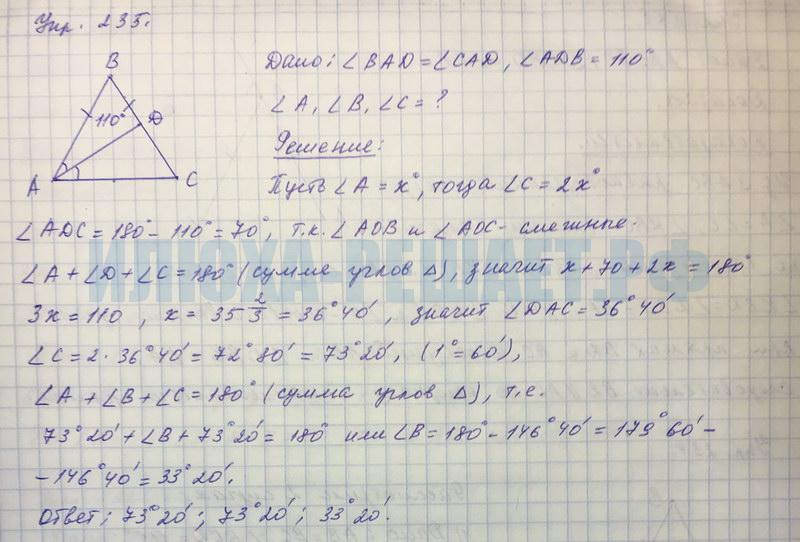 Упр. 235.
B
110°
D
A
C
Дано: ∠BAD = ∠CAD, ∠ADB = 110°
∠A, ∠B, ∠C = ?
Решение:
Пусть ∠A = x°, тогда ∠C = 2x°
∠ADC = 180° - 110° = 70°, т.к. ∠ADB и ∠ADC - смежные.
∠A + ∠D + ∠C = 180° (сумма углов Δ), значит x + 70 + 2x = 180°
3x = 110, x = 35 2/3 = 36°40′, значит ∠DAC = 36°40′
∠C = 2 · 36°40′ = 72°80′ = 73°20′, (1° = 60′),
∠A + ∠B + ∠C = 180° (сумма углов Δ), т.е.
73°20′ + ∠B + 73°20′ = 180° или ∠B = 180° - 146°40′ = 179°60′ -
- 146°40′ = 33°20′.
Ответ: 73°20′; 73°20′; 33°20′.
ИЛЮХА-РЕШАЕТ.РФ